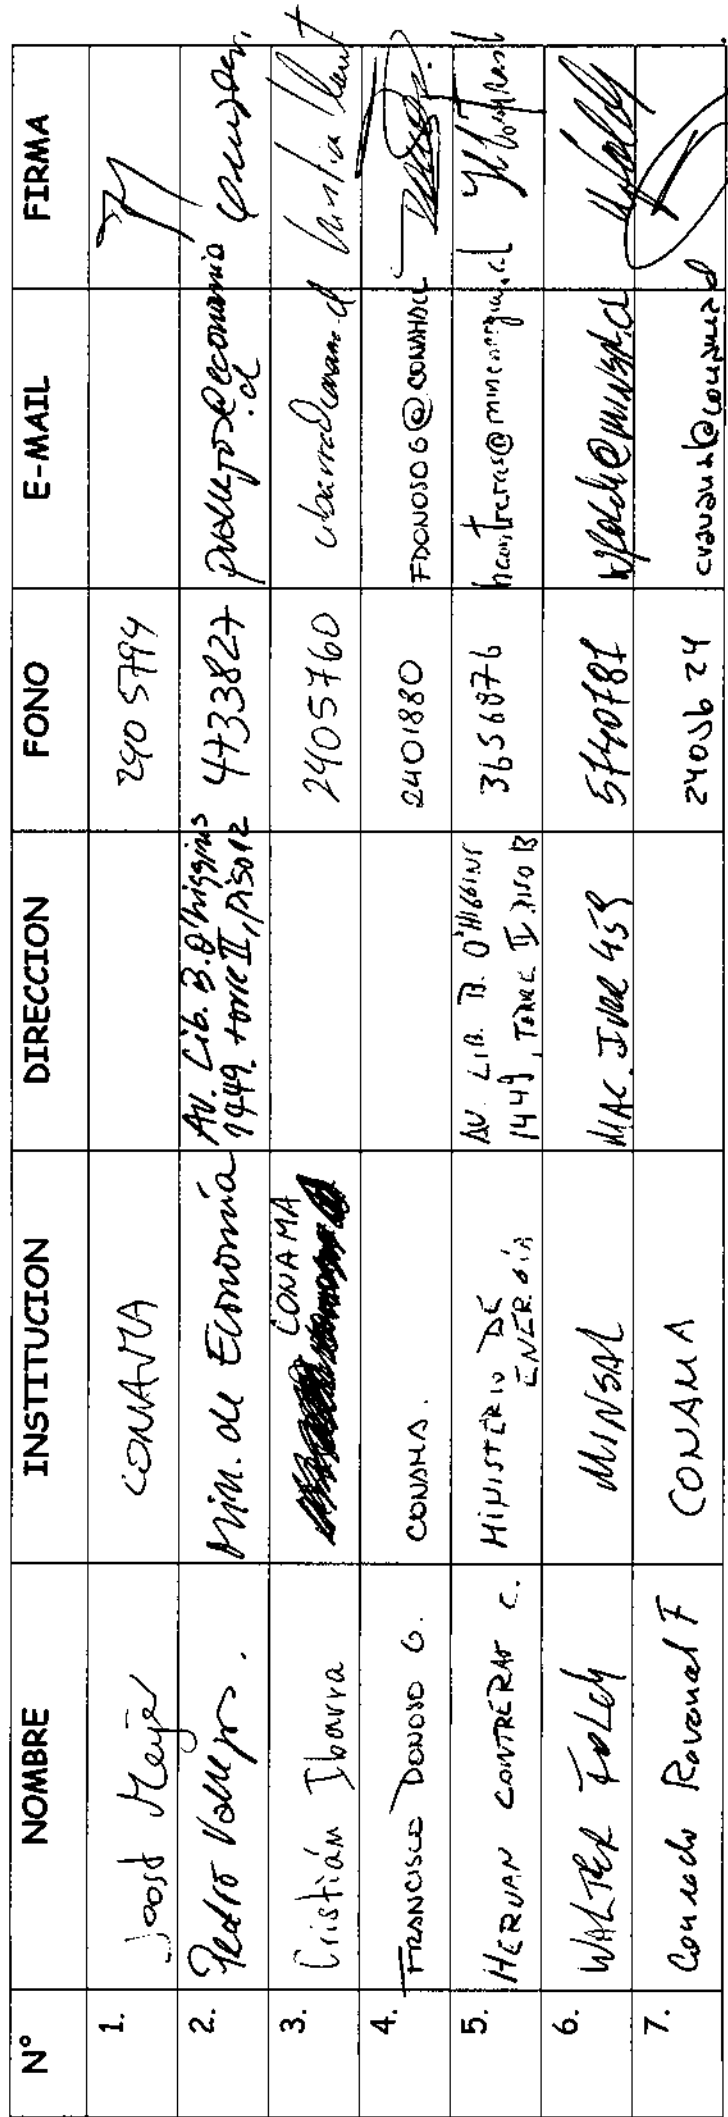 N° NOMBRE INSTITUCION DIRECCION FONO E-MAIL FIRMA
1. Joost Meijer CONAMA 2405794
2. Pedro Min. de Economía Av. Lib. B. O'higgins 1449. torre II, piso 12 4733827
3. Cristián Ibarra CONAMA 2405760
4. FRANCISCO DONOSO G. CONAMA. 2401880 FDONOSOG@CONAMA.CL
5. HERNAN CONTRERAS C. MINISTERIO DE ENERGÍA AV. LIB. B. O'HIGGINS 1449, TORRE II PISO 13 3656876 hcontreras@minenergia.cl
6. WALTER FOLCH MINSAL MAC. IVER 459 5740787 wfolch@MINSAL.CL
7. Conrado Ravanal F CONAMA 2405624